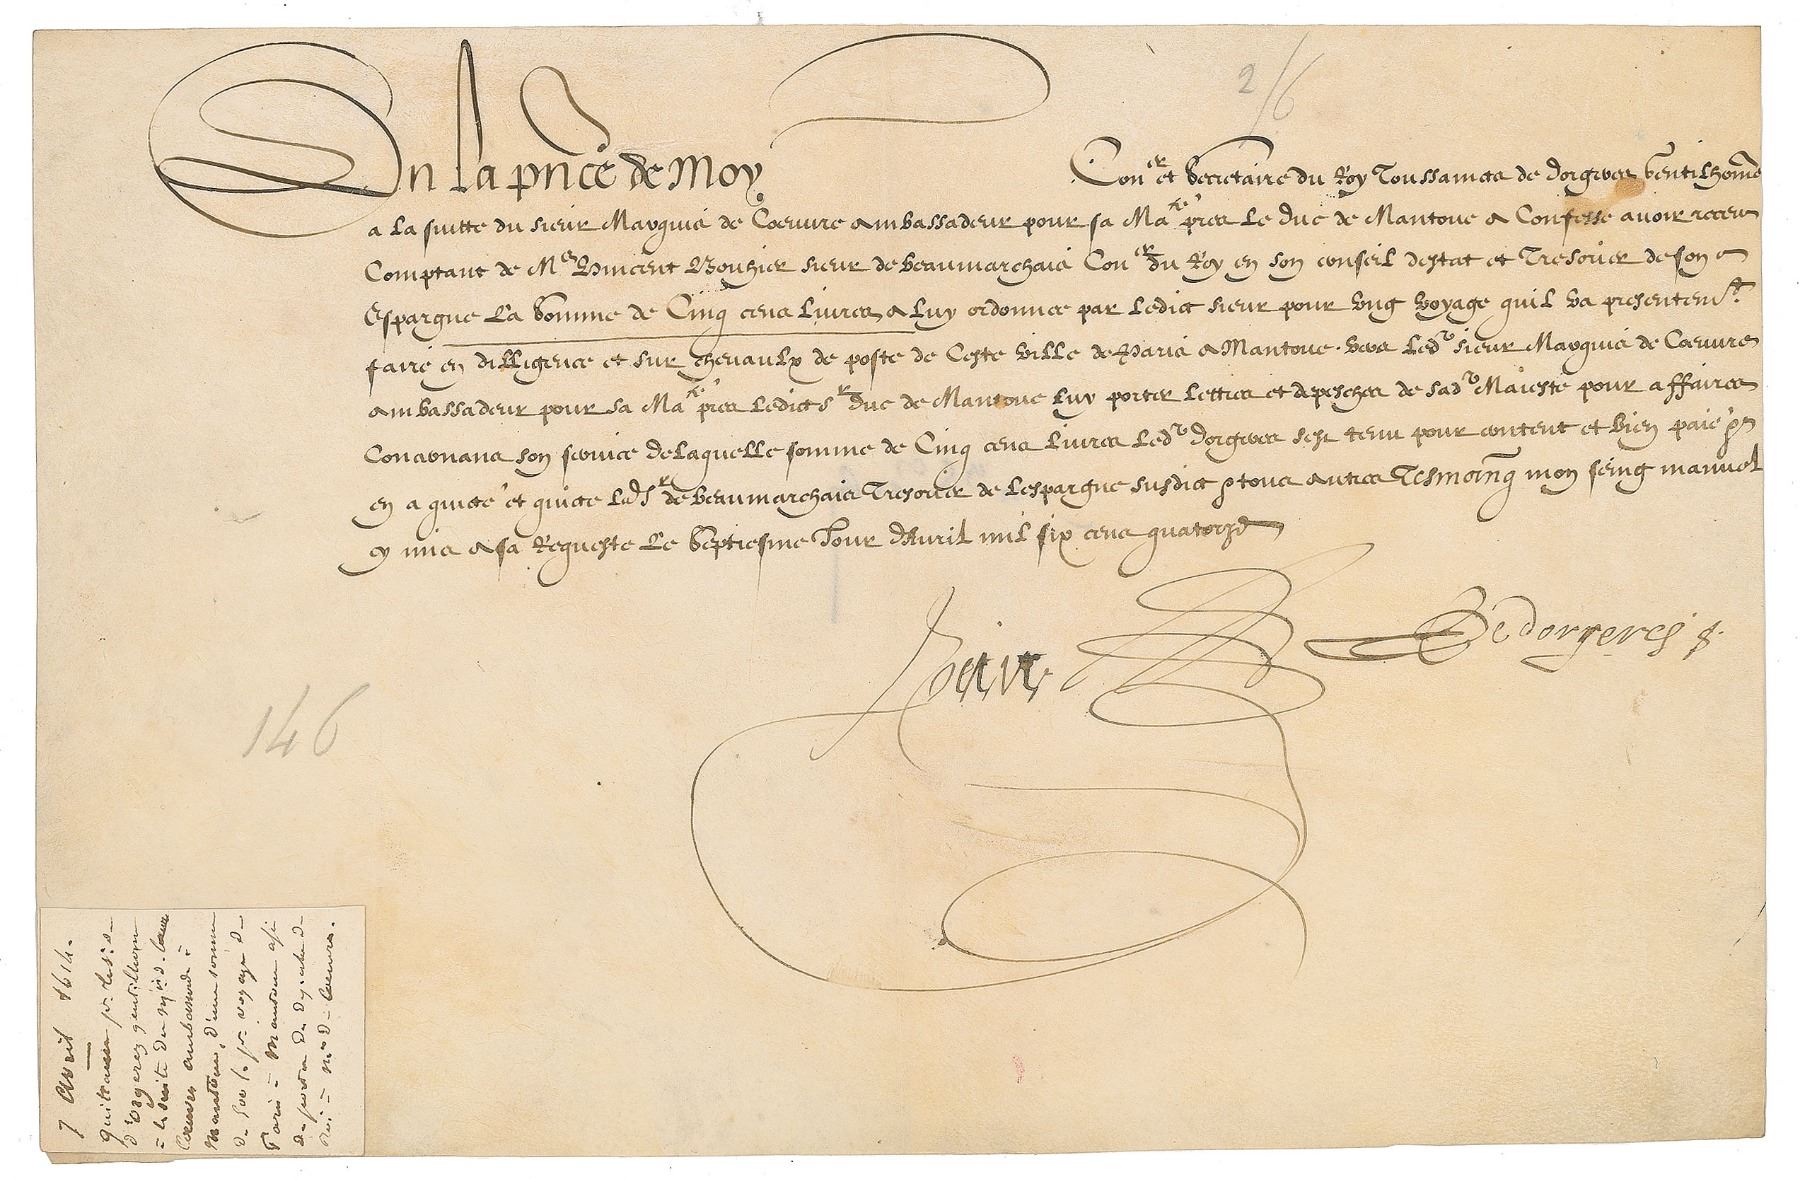 2/6
En la pnce de Moy Coner et Secretaire du Roy Toussainctz de dorgeres Gentilhome
a la suitte du sieur Marquis de Coeuure Ambassadeur pour sa Mate pres le duc de Mantoue a Confesse auoir receu
Comptant de Me Vincent Bouhier sieur de beaumarchais Coner du Roy en son conseil destat et Tresorier de son
Espargne La Somme de Cinq cens Liures a Luy ordonnee par Ledict sieur pour vng voyage quil va presentemt
faire en dilligence et sur cheuaulx de poste de Ceste ville de Paris a Mantoue vers Ledt sieur Marquis de Coeuures
Ambassadeur pour sa Mate pres Ledict Sr duc de Mantoue Luy porter Lettres et depesches de sadt Maieste pour affaires
Concernans son seruice de Laquelle somme de Cinq cens Liures Ledt dorgeres sest tenu pour content et bien paié
en a quicté et quicte Led Sr de beaumarchais Tresorier de Lespargne susdict tous autres Tesmoing mon seing manuel
cy mis a sa Requeste Le Septiesme Jour dAuril mil six cens quatorze
De dorgeres
146
7 Avril 1614.
quittance pr
d'Orgerez gentilhom
à la suite du
Coeuvres ambassade à
Mantoue, d'une somme
de 500 l. pr voyage de
Paris à Mantoue